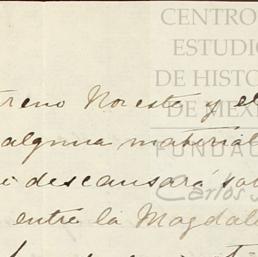 CENTRO
ESTUDIO
DE HISTO
DE MÉX
FUNDAC
Carlos S
treno Noreste y el
alguna material
descansará
entre la Magdal